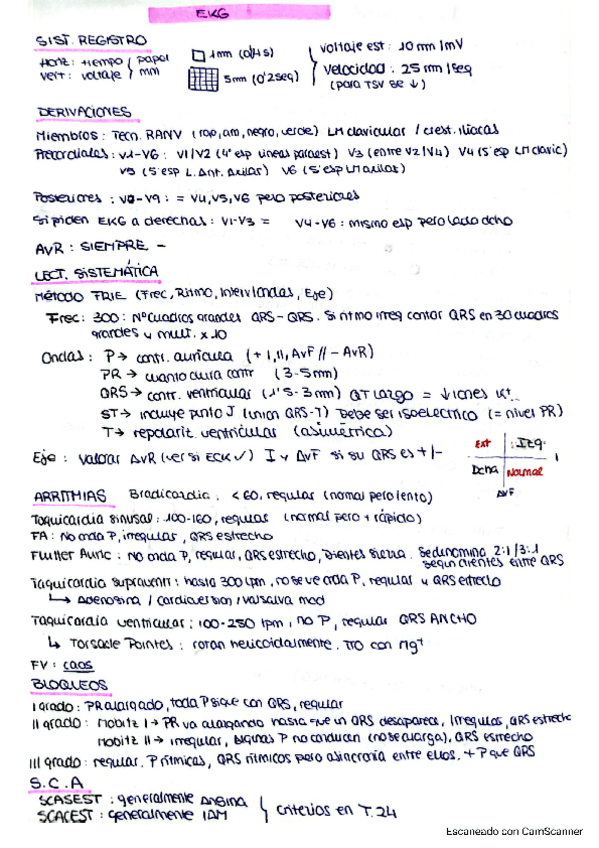 EKG
SIST. REGISTRO
Horiz: tiempo } papel
vert: voltaje } mm
1mm (0'04s)
5mm (0'2seg)
voltaje est: 10 mm/mV
Velocidad: 25 mm/seg
(para TSV se ↓)
DERIVACIONES
Miembros: Tecn. RANV (rojo, amo, negro, verde) LM clavicular / crest. iliacas
Precordiales: V1-V6: V1/V2 (4º esp lineas paraest) V3 (entre V2/V4) V4 (5'esp LM clavic)
V5 (5'esp L. Ant. Axilar) V6 (5'esp LM axilar)
Posteriores: V8-V9: = V4, V5, V6 pero posteriores
Si piden EKG a derechas: V1-V3 = V4-V6: mismo esp pero lado dcho
AVR: SIEMPRE -
LECT. SISTEMÁTICA
Método FRIE (Frec, Ritmo, Interv/ondas, Eje)
Frec: 300: Nº cuadros grandes QRS-QRS. Si ritmo irreg contar QRS en 30 cuadros
grandes y mult. x 10
Ondas: P → contr. auricula (+ I, II, AvF // - AvR)
PR → cuanto dura contr (3-5mm)
QRS → contr. ventricular (1'5-3mm) QT largo = ↓iones K+
ST → incluye punto J (union QRS-T) Debe ser isoelectrico (= nivel PR)
T → repolariz. ventricular (asimétrica)
Eje: valorar AVR (ver si ECK ✓) I y AVF si su QRS es +/-
Ext Izq.
I
Dcha Normal
AVF
ARRITMIAS Bradicardia: <60, regular (normal pero lento)
Taquicardia sinusal: 100-160, regular (normal pero + rápido)
FA: No onda P, irregular, QRS estrecho
Flutter Auric: No onda P, regular, QRS estrecho, Dientes sierra. Se denomina 2:1/3:1
según dientes entre QRS
Taquicardia supraventr: hasta 300 lpm, no se ve onda P, regular y QRS estrecho
↳ Adenosina / cardioversion / valsalva mod
Taquicardia ventricular: 100-250 lpm, no P, regular QRS ANCHO
↳ Torsade Pointes: rotan helicoidalmente. TTO con Mg+
FV: caos
BLOQUEOS
I grado: PR alargado, toda P sigue con QRS, regular
II grado: Mobitz I → PR va alargando hasta que un QRS desaparece, Irregular, QRS estrecho
Mobitz II → irregular, algunas P no conducen (no se alarga), QRS estrecho
III grado: regular. P rítmicas, QRS rítmicos pero asincronía entre ellos. + P que QRS
S.C.A
SCASEST: generalmente Angina
SCACEST: generalmente IAM
} criterios en T.24
Escaneado con CamScanner